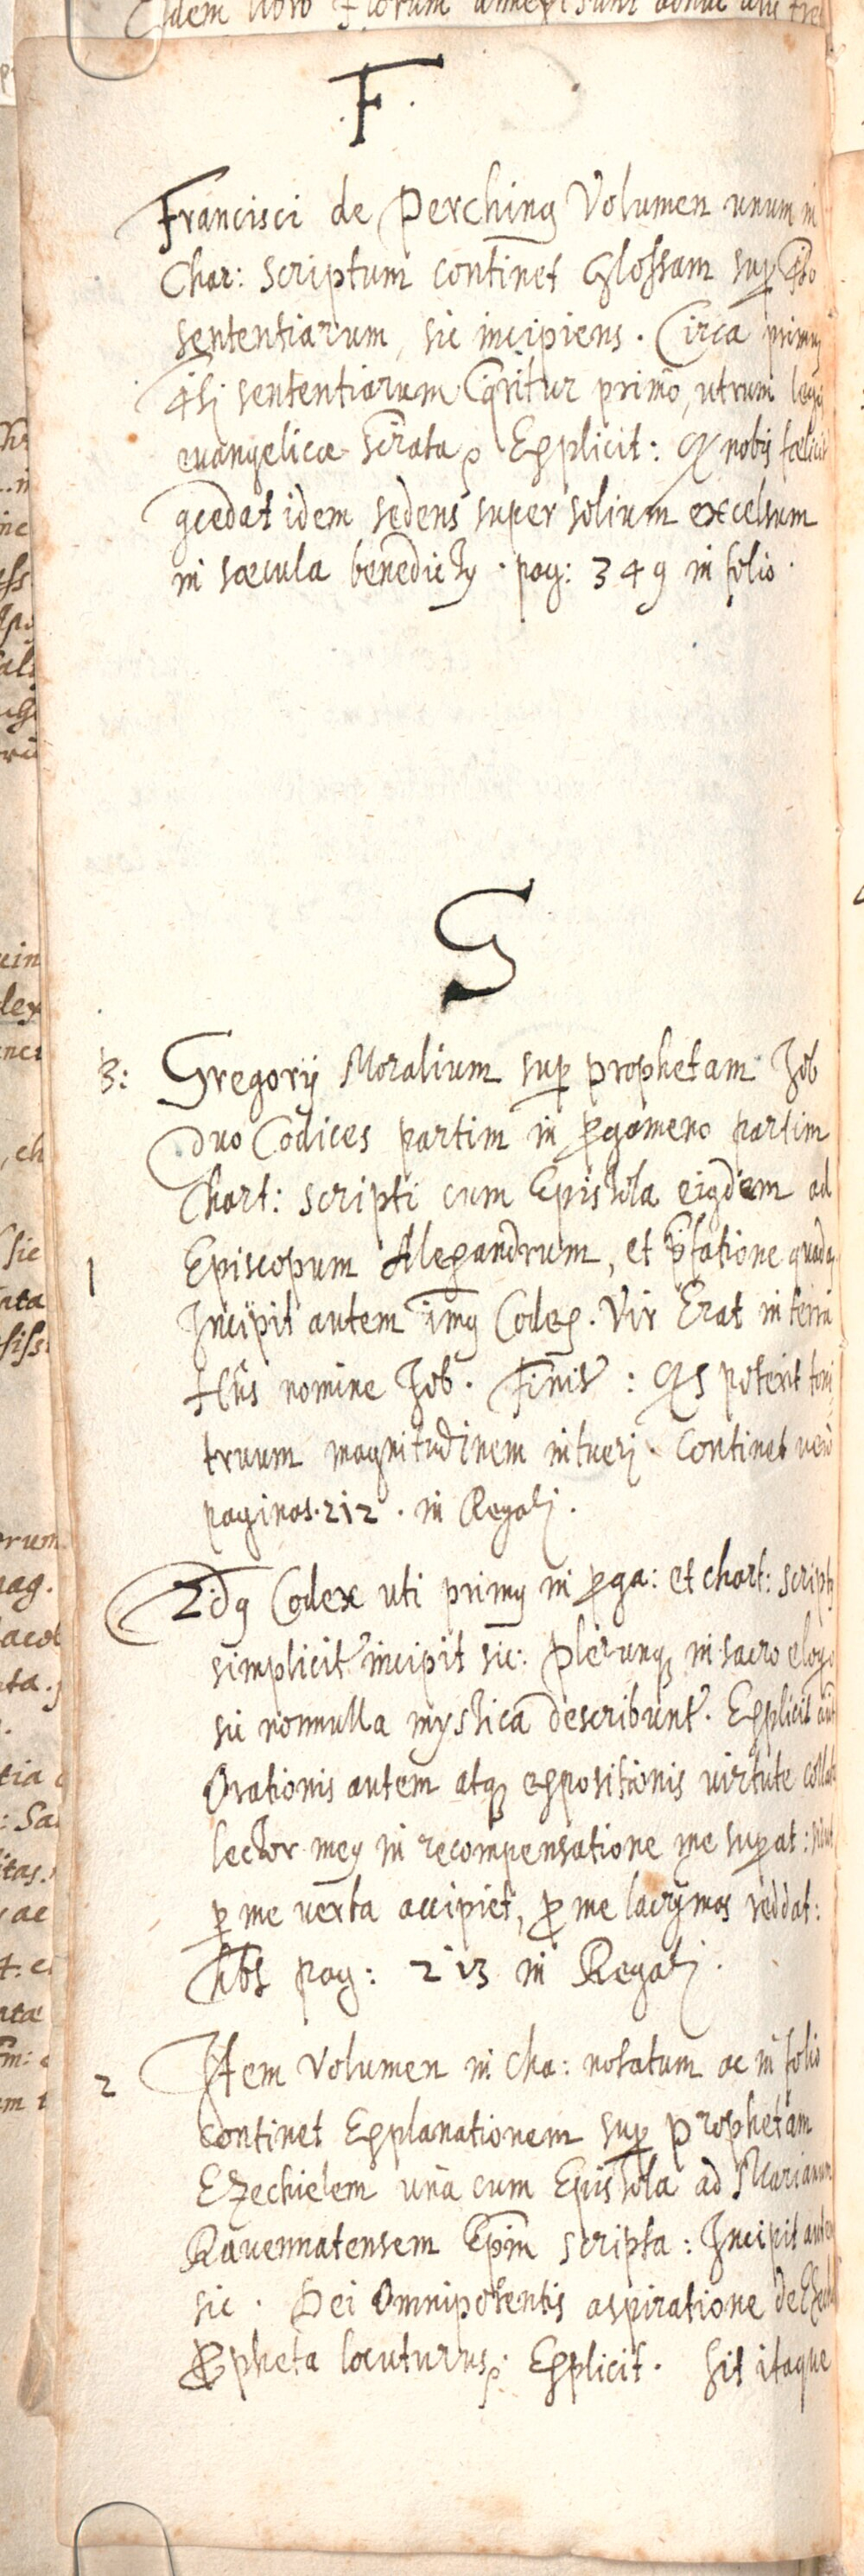 .F.
Francisci de Perching Volumen unum in
Char: scriptum continet Glossam sup 4to
sententiarum, sic incipiens. Circa primum
4ti sententiarum Qritur primo, utrum legis
euangelicæ Scrata. Explicit: nobis
gcedat idem sedens super solium excelsum
in sæcula benedictus. pag: 349 in folio.
G
3: Gregorij Moralium sup prophetam Job
duo Codices partim in pgameno partim
Chart: scripti cum Epistola eiqdem ad
1 Episcopum Alexandrum, et pfatione quadam
Incipit autem imus Codex. Vir Erat in terra
Hus nomine Job. Finit: Qis poterit toni
truum magnitudinem intueri. Continet vero
paginas. 212. in Regali.
2dus Codex uti primus in pga: et chart: scriptus
simplicit incipit sic: Plerunq in sacro eloqo
sic nonnulla mystica describunt. Explicit aut
Orationis autem atq expositionis virtute collata
lector meus in recompensatione me supat: sicut
p me verba accipiet, p me lacrymas reddat:
hbs pag: 213 in Regali.
2 Item Volumen in cha: notatum ac in folio
continet Explanationem sup Prophetam
Ezechielem una cum Epistola ad Marianum
Rauennatensem Epm scripta: Incipit autem
sic. Dei Omnipotentis aspiratione de
Ppheta locuturus. Explicit. Sit itaque